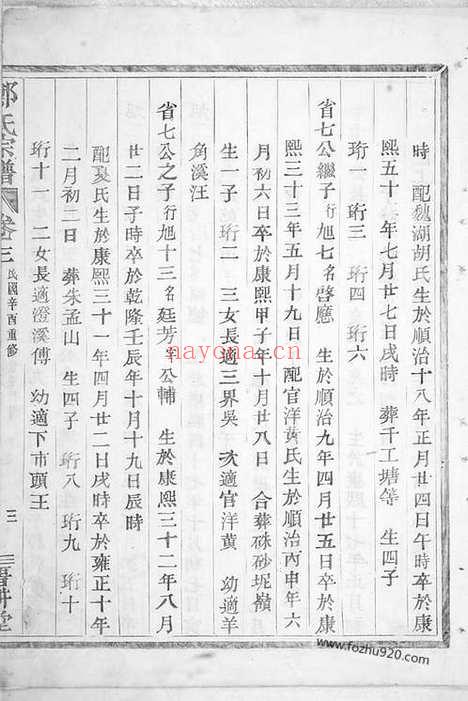 時 配魏湖胡氏生於順治十八年正月廿四日午時卒於康
熙五十 年七月廿七日戌時 葬千工塘等 生四子
珩一 珩三 珩四 珩六
省七公繼子行旭七名啓應 生於順治九年四月廿五日卒於康
熙三十三年五月十九日 配官洋黃氏生於順治丙申年六
月初六日卒於康熙甲子年十月廿八日 合葬硃砂坭嶺
生一子 珩二 三女長適三界吳 次適官洋黄 幼適羊
角溪汪
省七公之子行旭十三名廷芳字公輔 生於康熙三十二年八月
廿二日子時卒於乾隆壬辰年十月十九日辰時
配夏氏生於康熙三十一年四月廿二日戌時卒於雍正十年
二月初二日 葬朱孟山 生四子 珩八 珩九 珩十
珩十一 二女長適澄溪傅 幼適下市頭王
氏宗譜 卷三 民國辛酉重修 三 堂
nayona.cn
www.fozhu920.com